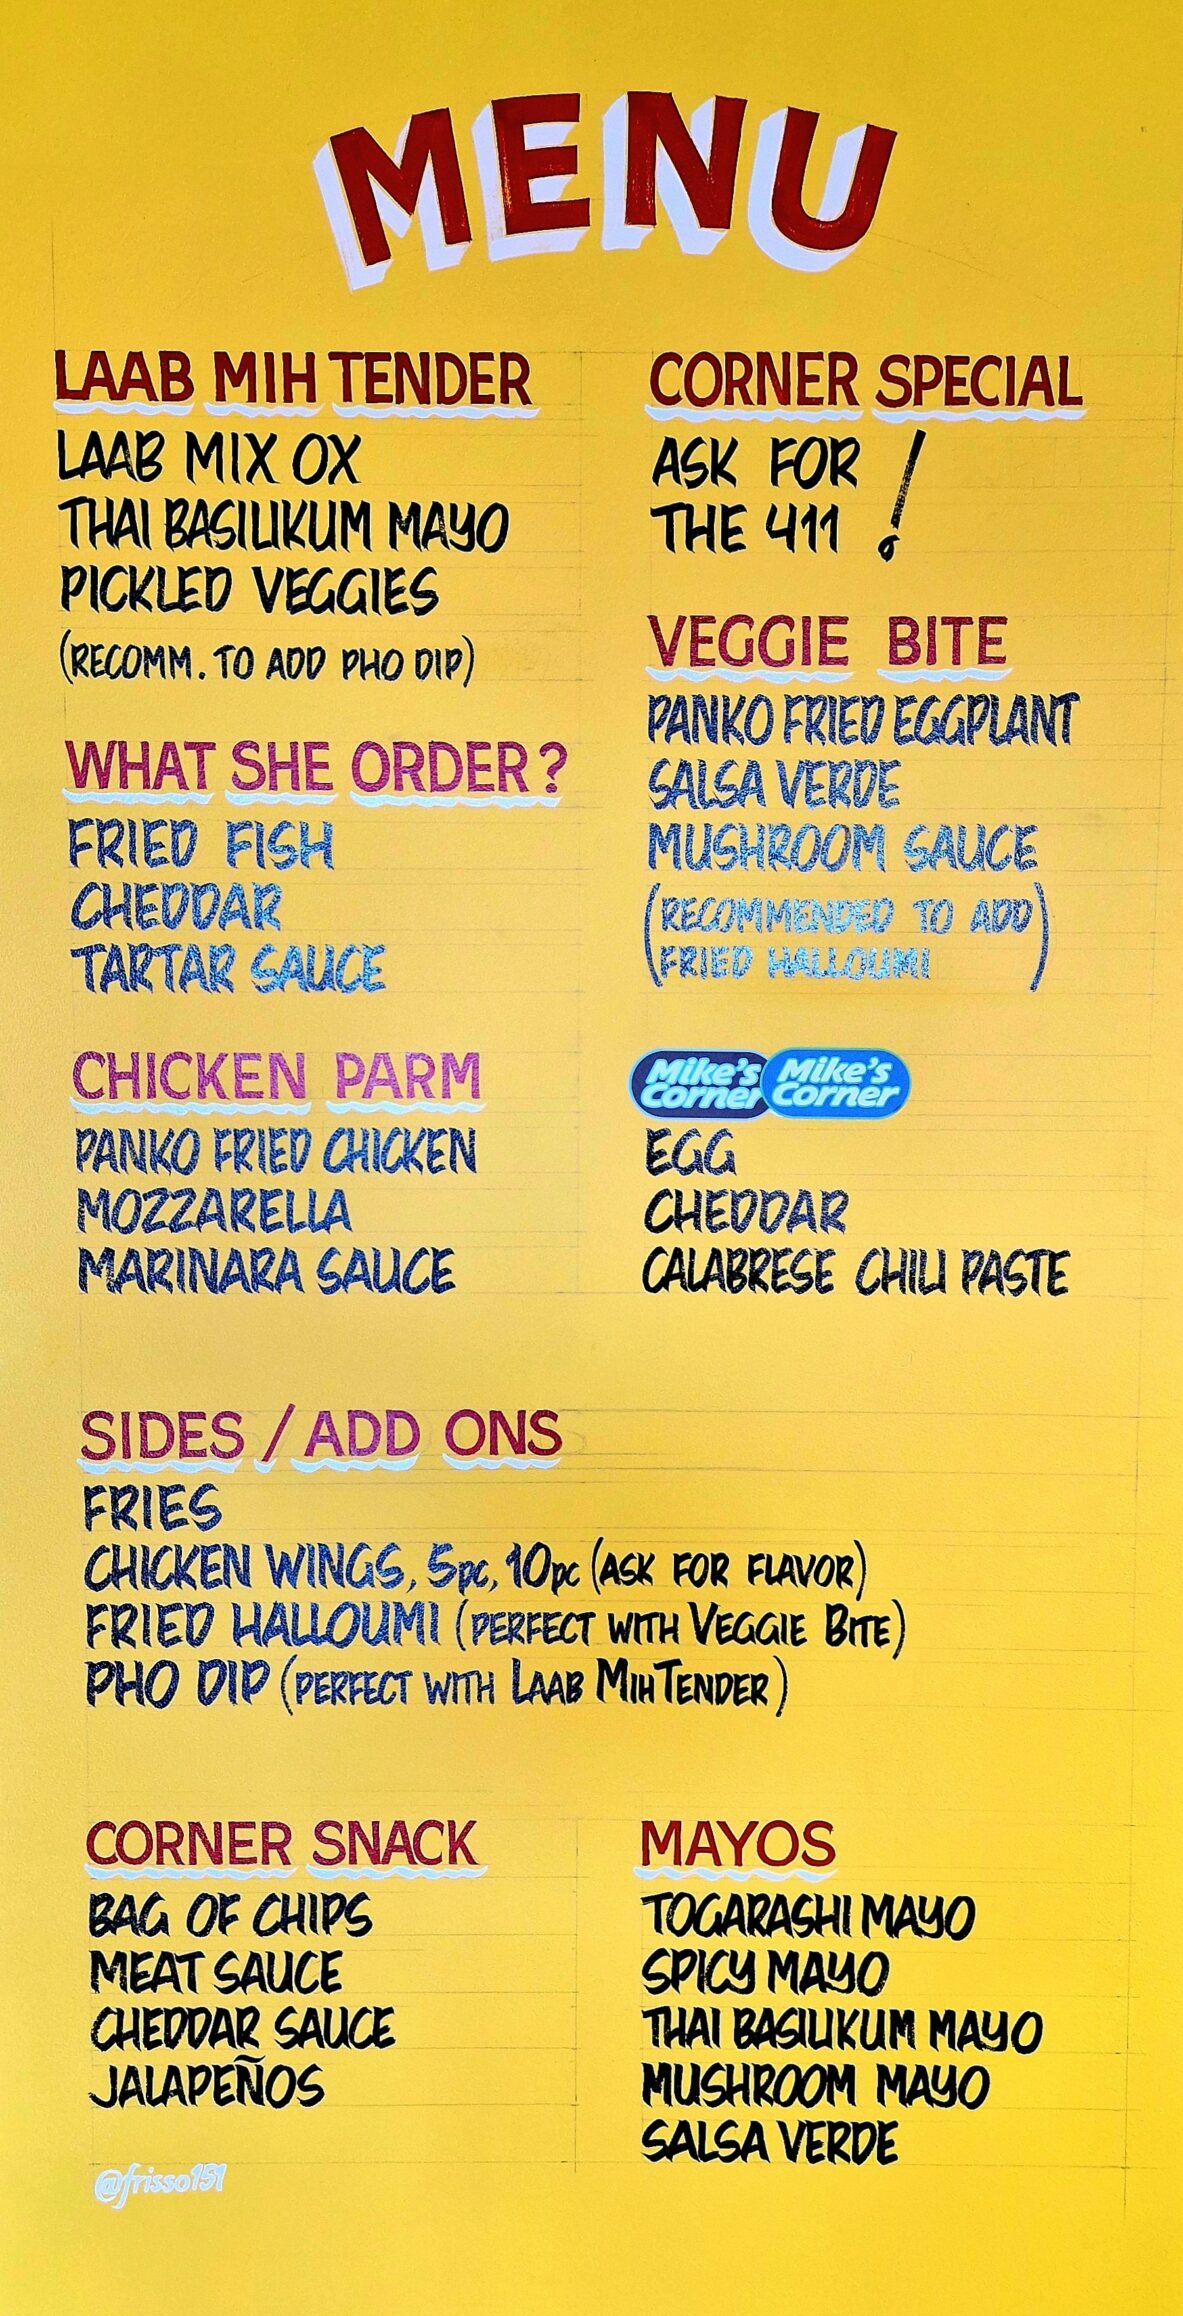 MENU
LAAB MIH TENDER
LAAB MIX OX
THAI BASILIKUM MAYO
PICKLED VEGGIES
(RECOMM. TO ADD PHO DIP)
WHAT SHE ORDER?
FRIED FISH
CHEDDAR
TARTAR SAUCE
CHICKEN PARM
PANKO FRIED CHICKEN
MOZZARELLA
MARINARA SAUCE
CORNER SPECIAL
ASK FOR
THE 411 !
VEGGIE BITE
PANKO FRIED EGGPLANT
SALSA VERDE
MUSHROOM SAUCE
(RECOMMENDED TO ADD
FRIED HALLOUMI)
Mike's Mike's
Corner Corner
EGG
CHEDDAR
CALABRESE CHILI PASTE
SIDES / ADD ONS
FRIES
CHICKEN WINGS, 5pc, 10pc (ASK FOR FLAVOR)
FRIED HALLOUMI (PERFECT WITH VEGGIE BITE)
PHO DIP (PERFECT WITH LAAB MIH TENDER)
CORNER SNACK
BAG OF CHIPS
MEAT SAUCE
CHEDDAR SAUCE
JALAPEÑOS
MAYOS
TOGARASHI MAYO
SPICY MAYO
THAI BASILIKUM MAYO
MUSHROOM MAYO
SALSA VERDE
@frisso151